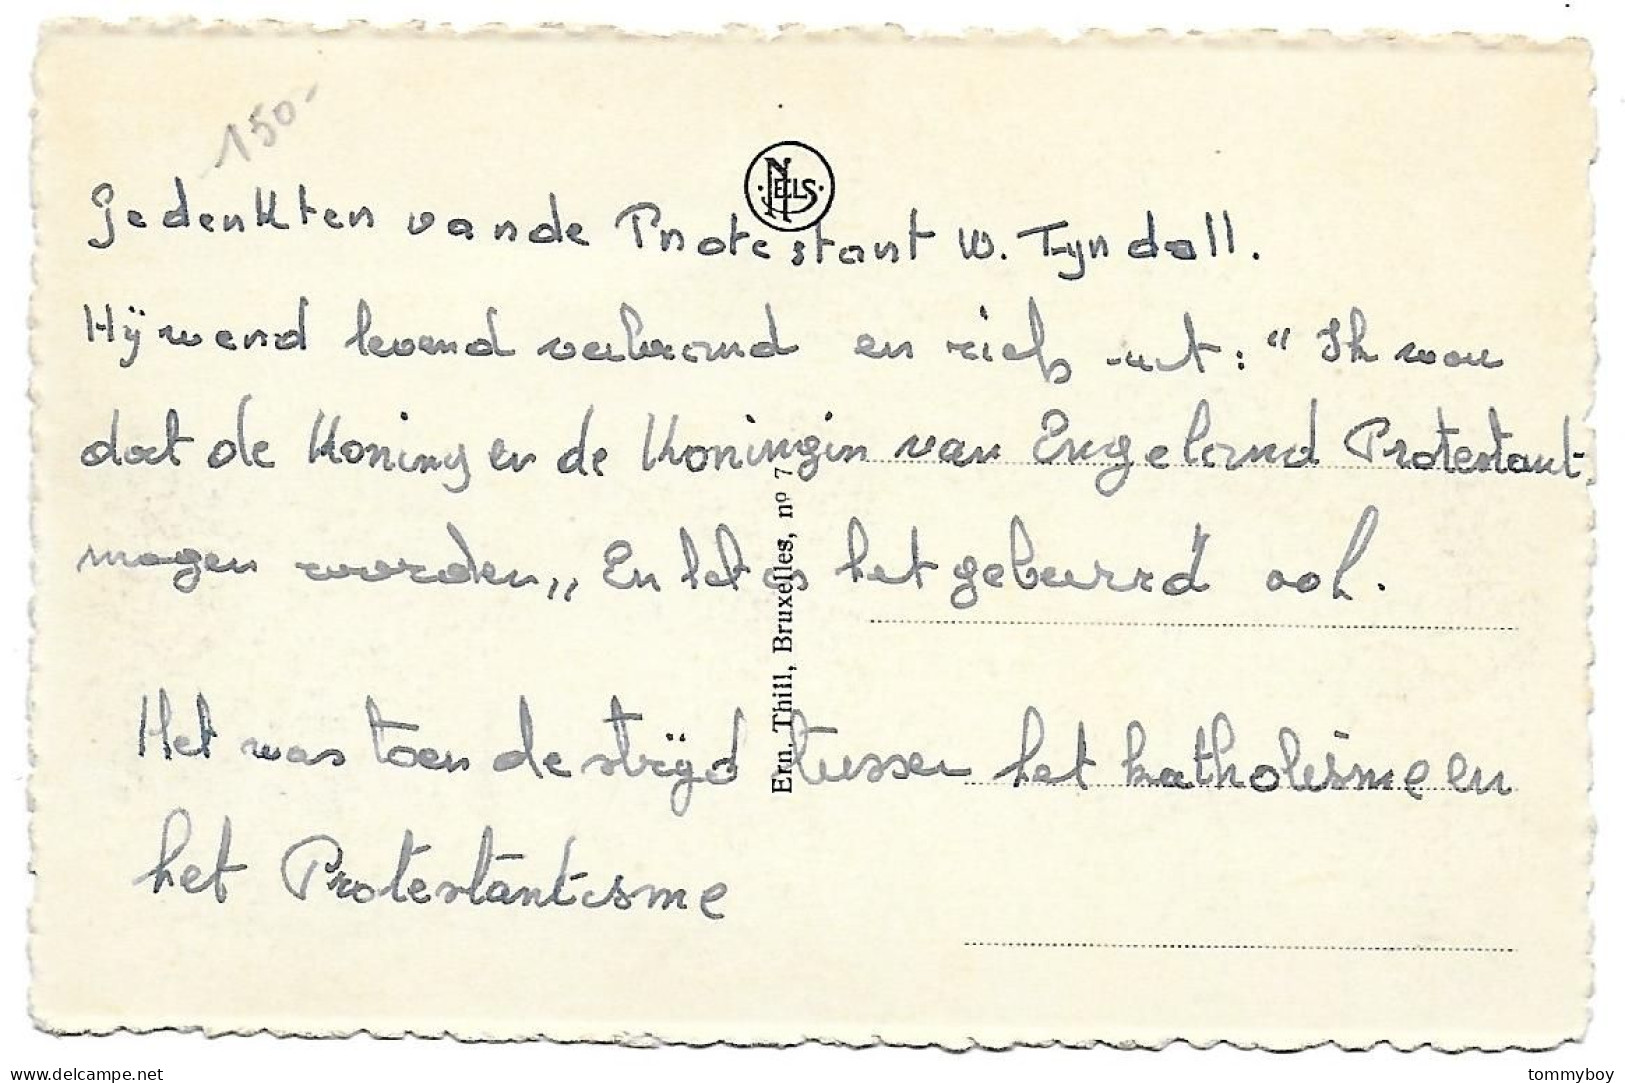 150-
NELS
Gedenkten van de Protestant W. Tyndall.
Hij werd levend verbrand en riep uit: "Ik wou
dat de Koning en de Koningin van Engeland Protestant
mogen worden,, En het is het gebeurrd ook.
Het was toen de strijd tussen het katholisme en
het Protestantisme
Ern. Thill, Bruxelles, nº 7
delcampe.net
tommyboy